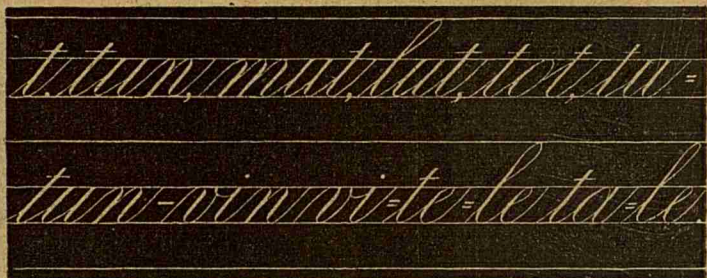 t, tun, mut, lut, tot, tu=
tun-vin vi=te=le ta=le